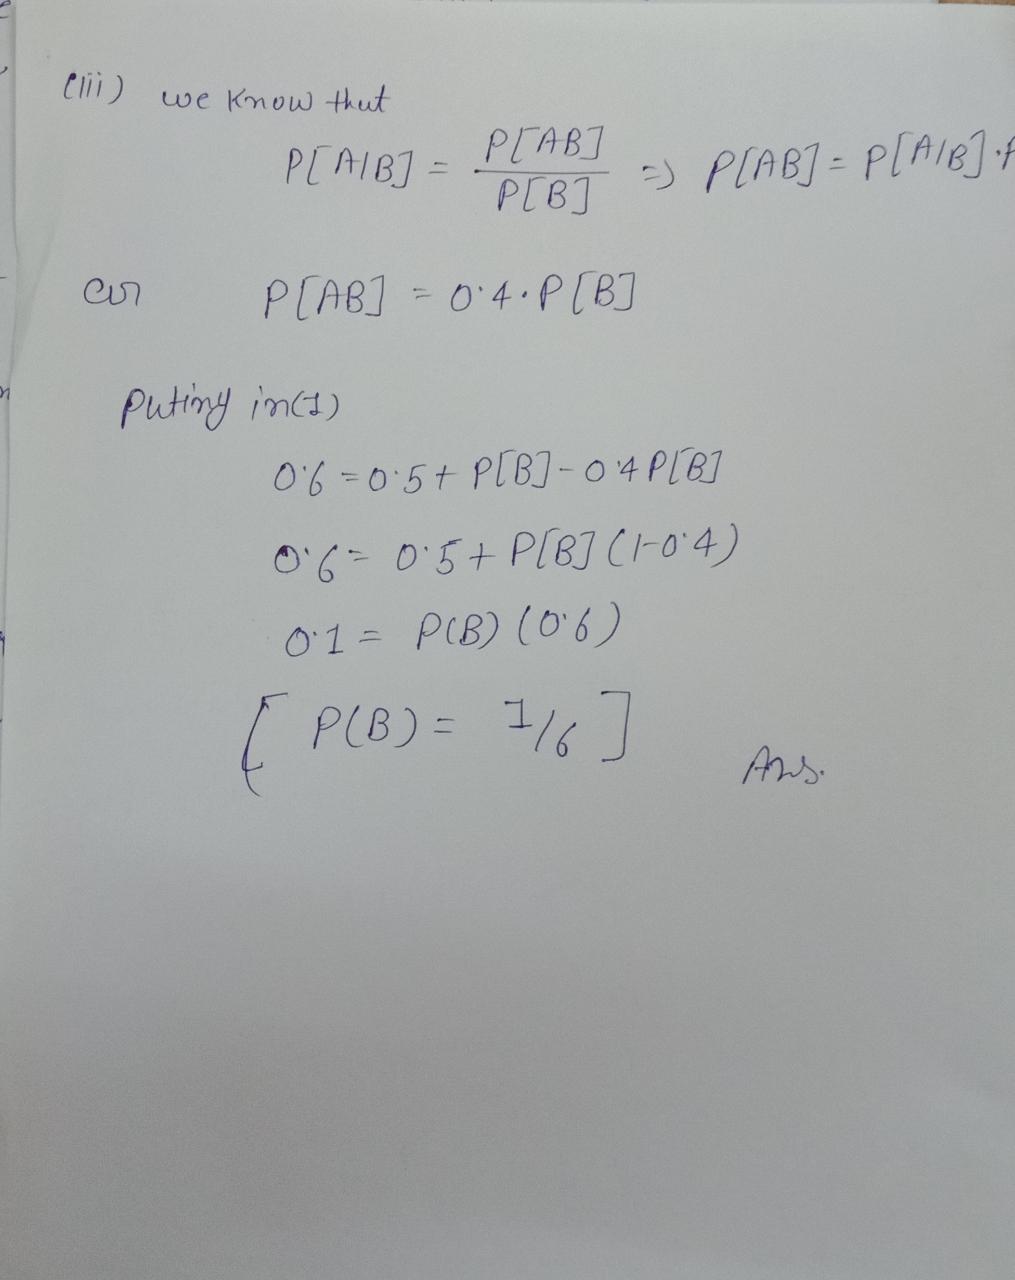 (iii) we know that
P[A|B] = P[AB] / P[B] => P[AB] = P[A|B].P
or P[AB] = 0.4.P[B]
Putiny in(1)
0.6 = 0.5 + P[B] - 0.4P[B]
0.6 = 0.5 + P[B] (1-0.4)
0.1 = P(B) (0.6)
[ P(B) = 1/6 ]
Ans.